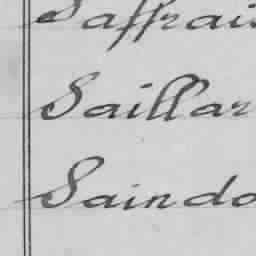 Saffrai
Saillar
Saindo